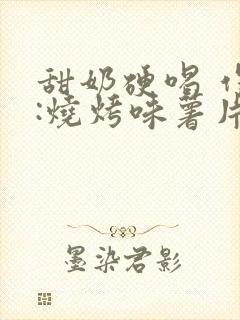 甜奶硬唱
:燒烤味薯片
墨染君影